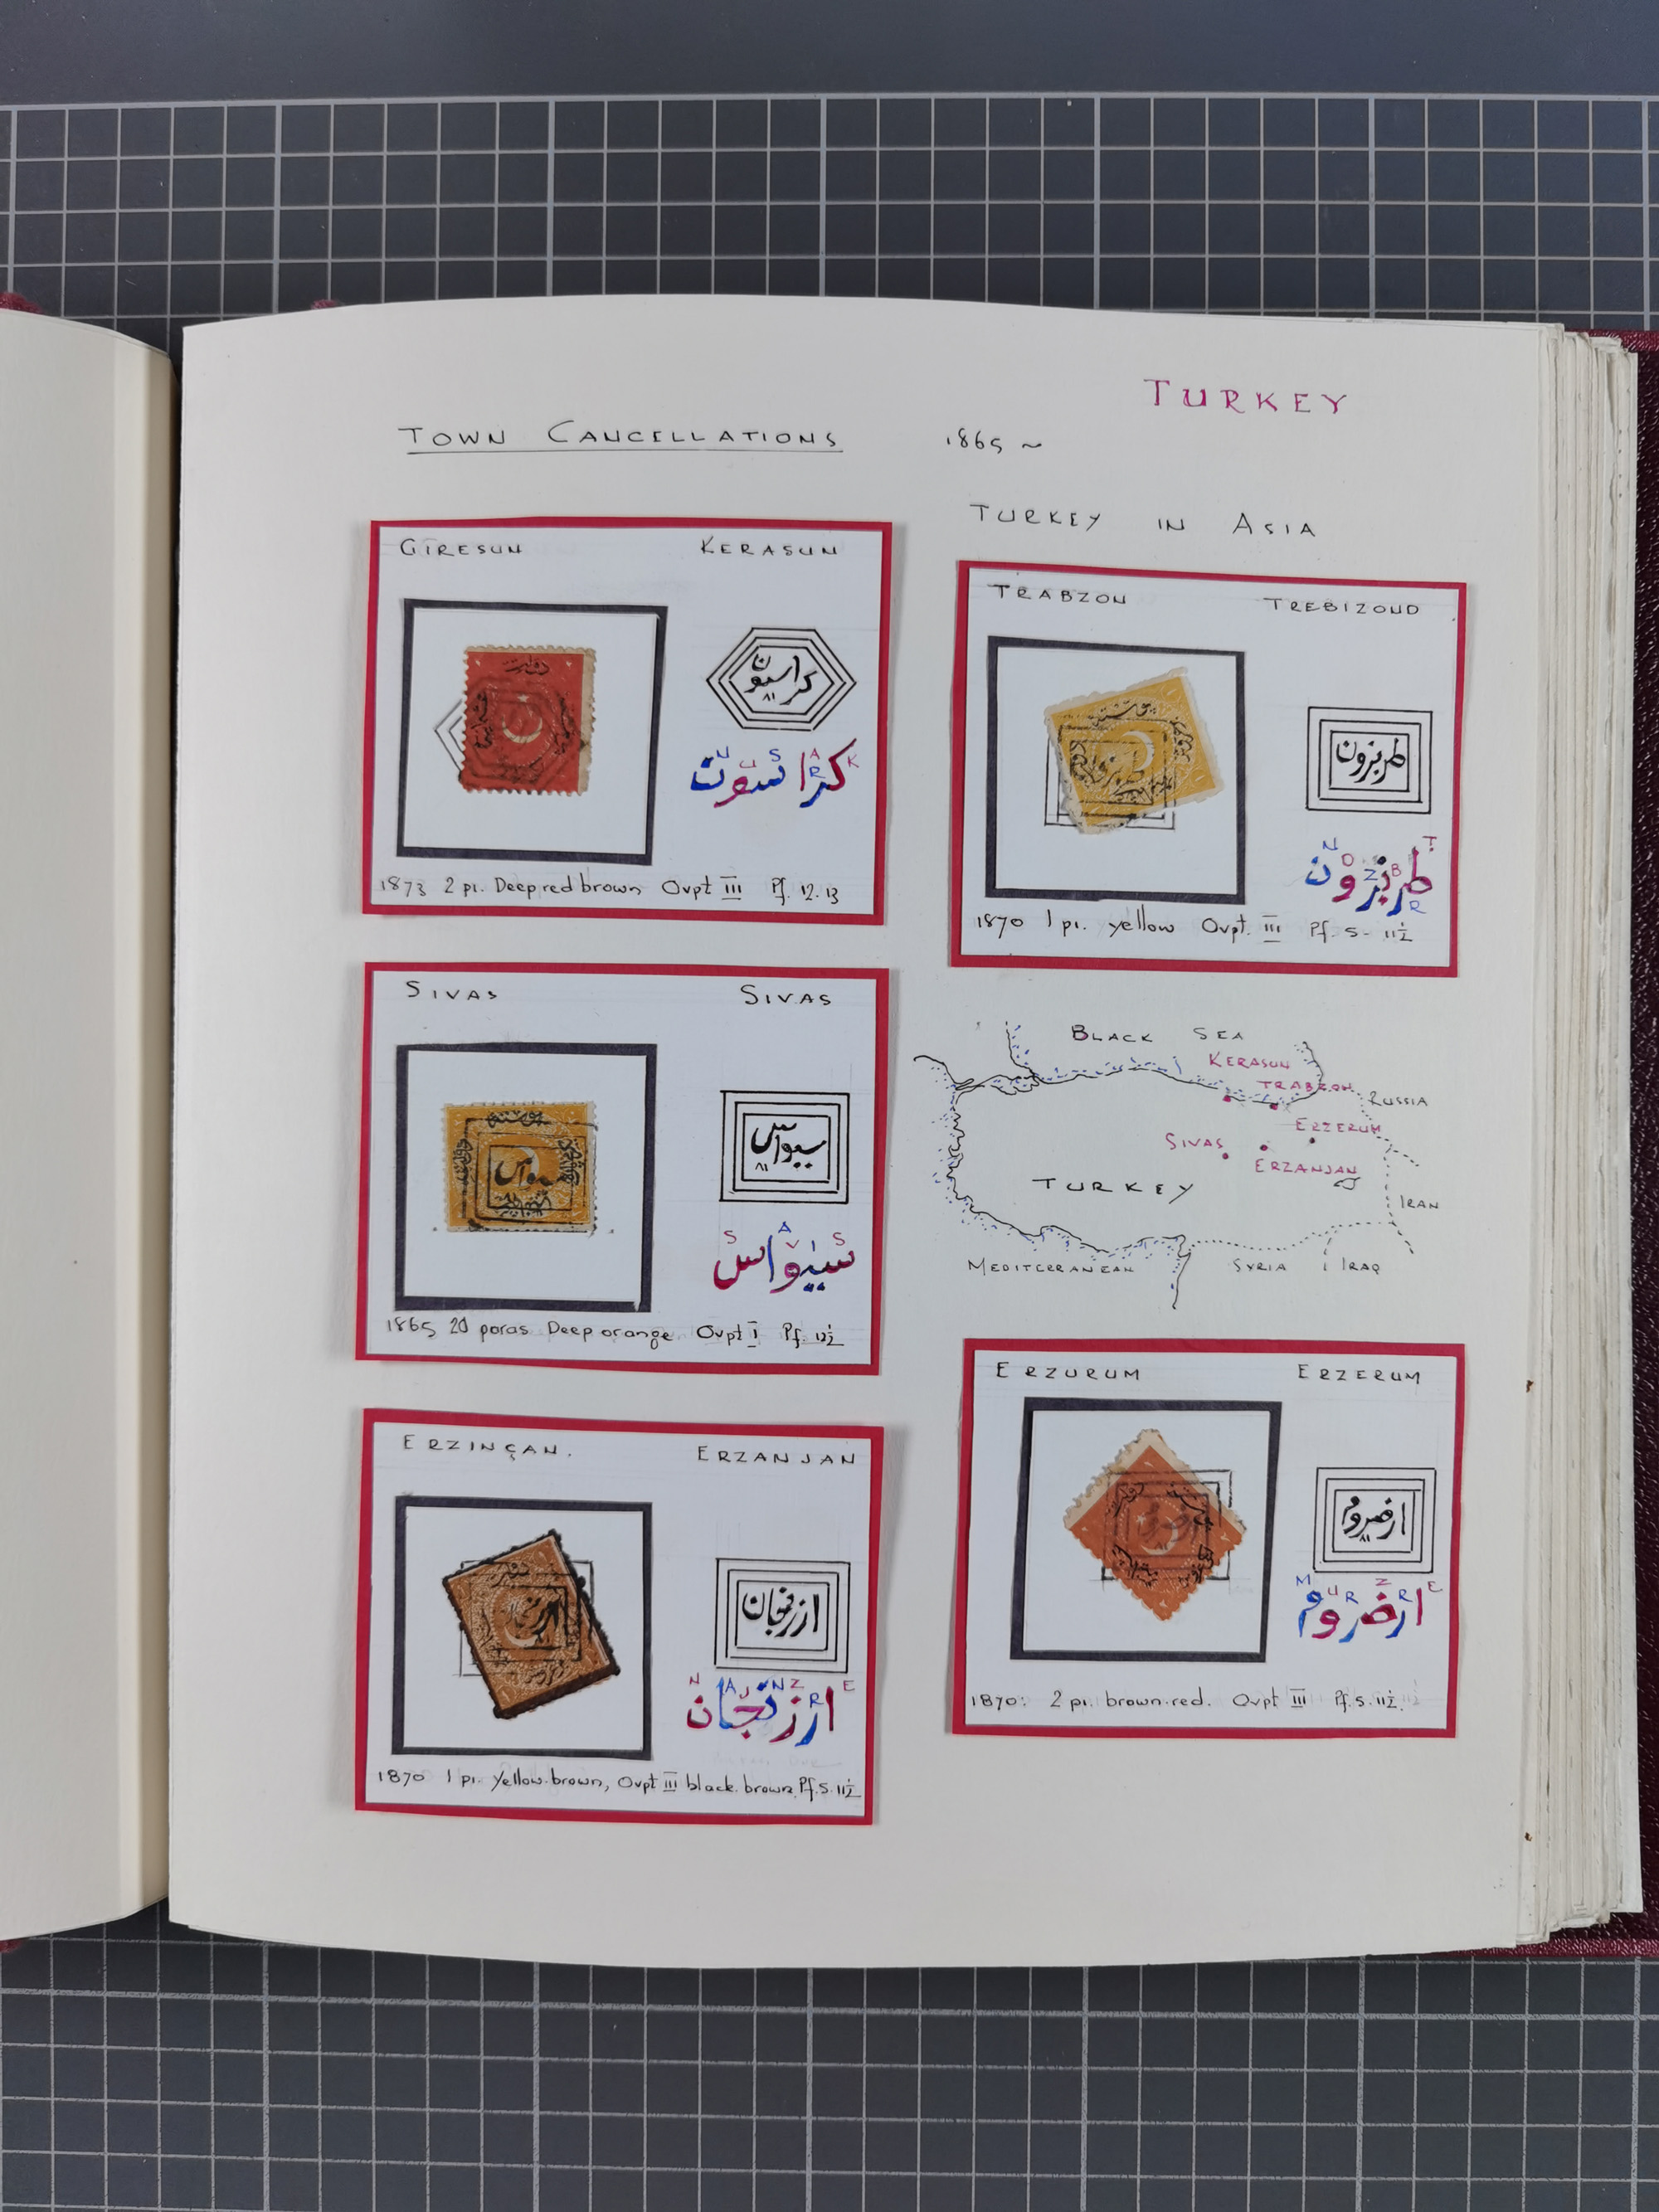 TURKEY
TOWN CANCELLATIONS
1865 ~
TURKEY IN ASIA
GIRESUN KERASUN
كراسون
٨١
K R A S U N
كراسون
1873 2 pi. Deep red brown Ovpt III Pf. 12.13
TRABZON TREBIZOND
طربزون
T R B Z O N
طربزون
1870 1 pi. yellow Ovpt. III Pf. 5 - 11½
SIVAS SIVAS
سيواس
٨١
S I V A S
سيواس
1865 20 paras Deep orange Ovpt I Pf. 12½
BLACK SEA
KERASUN
TRABZON
RUSSIA
ERZERUM
SIVAS
ERZANJAN
TURKEY
IRAN
MEDITERRANEAN
SYRIA
IRAQ
ERZINÇAN. ERZANJAN
ارزنجان
E R Z N J A N
ارزنجان
1870 1 pi. Yellow.brown, Ovpt III black.brown Pf.5.11½
ERZURUM ERZERUM
ارضروم
٨١
E R Z R U M
ارضروم
1870: 2 pi. brown.red. Ovpt III Pf.5.11½.